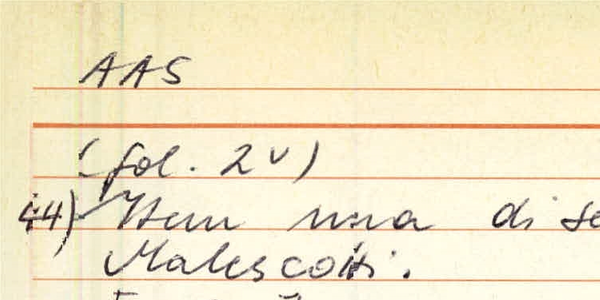 AAS
(fol. 2v)
44) Item una di se
Malescotti.